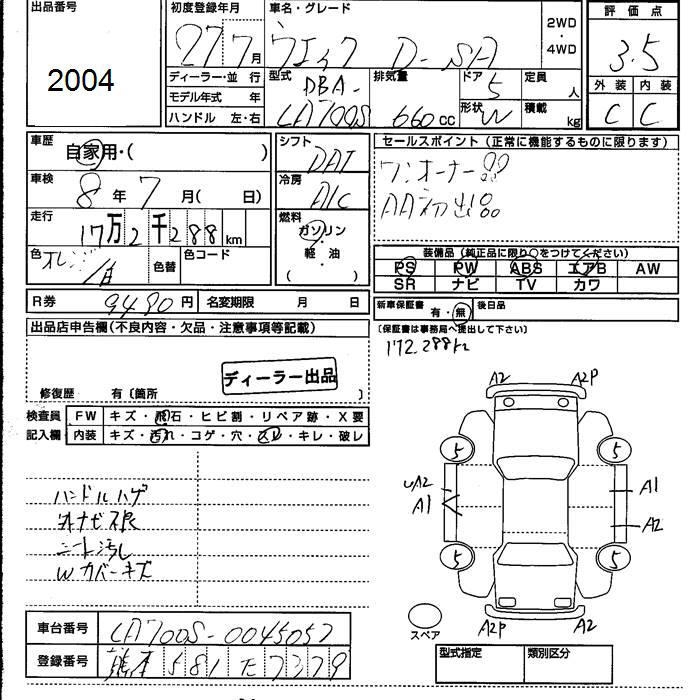 出品番号
2004
初度登録年月
27 7月
車名・グレード
ウェイク D-SA
2WD
・
4WD
評価点
3.5
外装 内装
C C
ディーラー・並 行
モデル年式 年
ハンドル 左・右
型式
DBA-
LA700S
排気量
660cc
ドア
5
形状
W
定員
人
積載
kg
車歴
自家用・( )
車検
8年7月( 日)
走行
17万2千288km
色
オレンジ/白
色替
色コード
R券
9480円
名変期限 月 日
シフト
DAT
冷房
A/C
燃料
ガソリン
・
軽油
( )
セールスポイント(正常に機能するものに限ります)
ワンオーナー品
AA初出品
装備品(純正品に限り○をつけてください)
PS PW ABS エアB AW
SR ナビ TV カワ
新車保証書 有・無
後日品
(保証書は事務局へ提出して下さい)
172.288km
出品店申告欄(不良内容・欠品・注意事項等記載)
ディーラー出品
修復歴 有〔箇所 〕
検査員
記入欄
FW キズ・飛石・ヒビ割・リペア跡・X要
内装 キズ・汚れ・コゲ・穴・スレ・キレ・破レ
ハンドルハゲ
シート汚し
Wカバーキズ
A2 A2P
5 5
UA2
A1
A1
A2
5 5
スペア
A2P A2
車台番号
LA700S-0045057
登録番号
熊本 581 た 7379
型式指定 類別区分